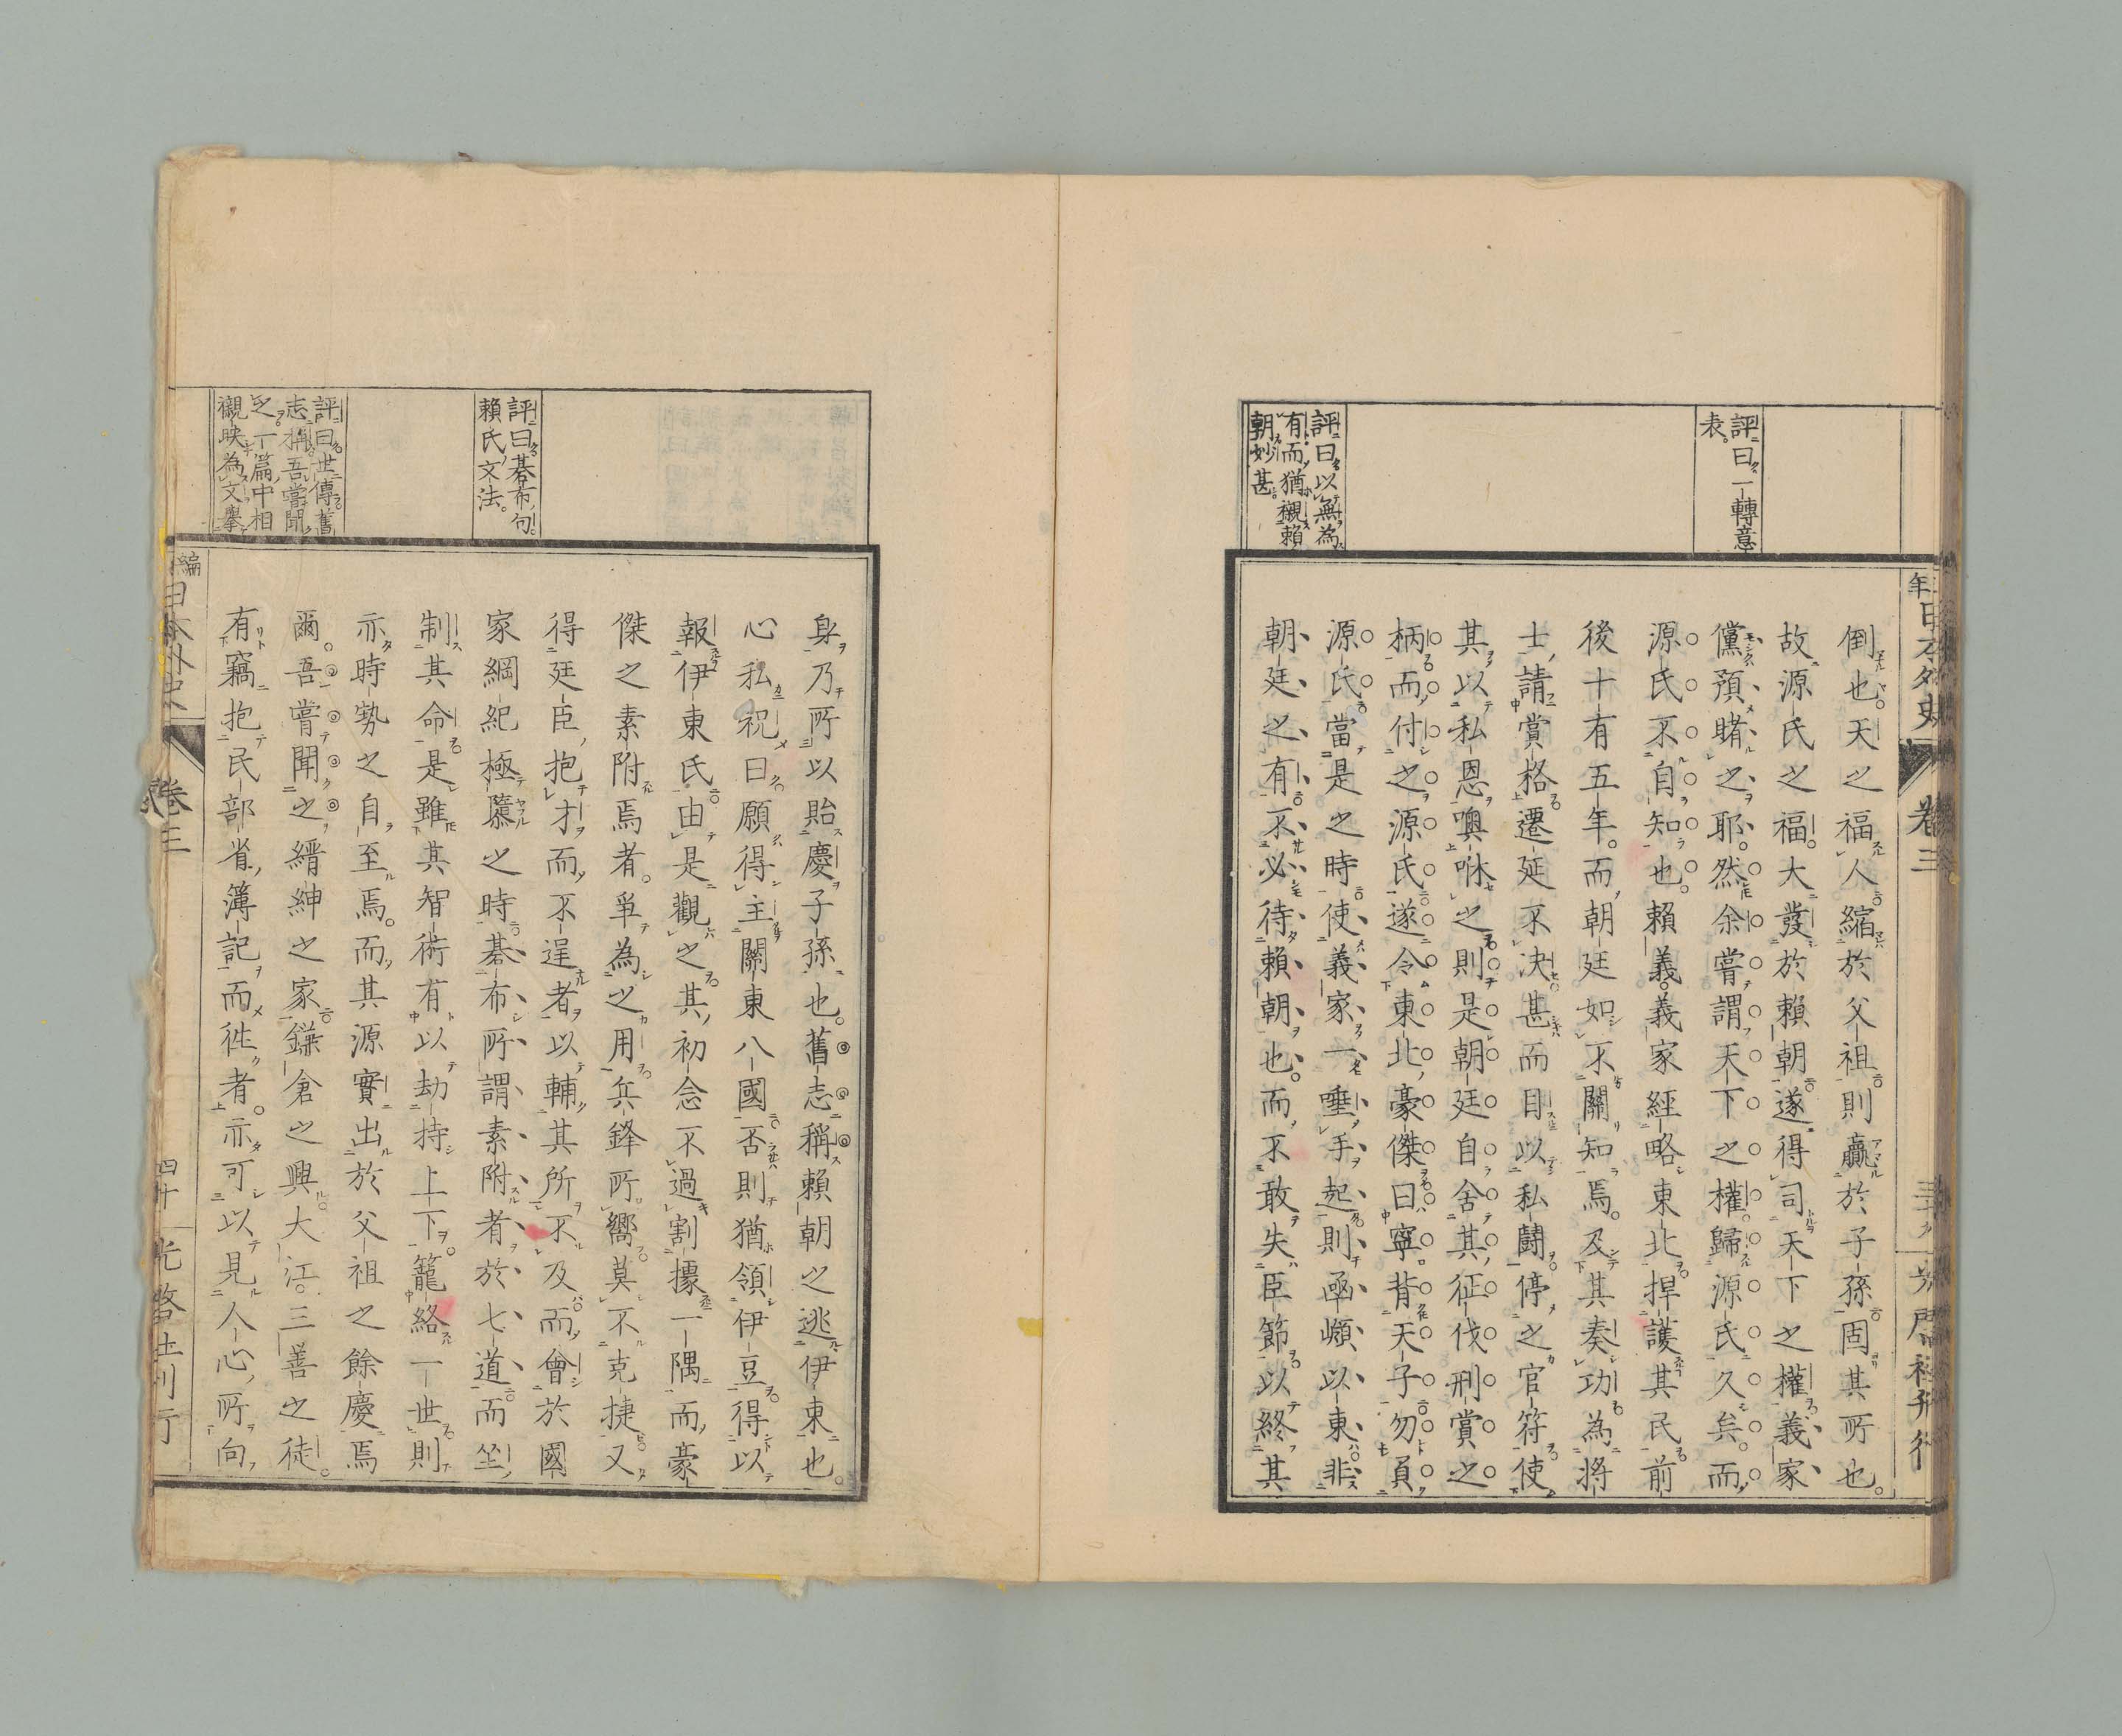 評曰一轉意
表。
評曰以無為
有而猶襯賴
朝妙甚
倒也。天之福人縮於父祖則贏於子孫固其所也。
故源氏之福大發於賴朝遂得司天下之權義家
儻預睹之耶。然余嘗謂天下之權歸源氏久矣。而
源氏不自知也。賴義義家經略東北捍護其民前
後十有五年。而朝廷如不關知焉。及其奏功為將
士請賞格遷延不決甚而目以私鬪停之官符使
其以私恩噢咻之則是朝廷自舍其征伐刑賞之
柄而付之源氏遂令東北豪傑曰寧背天子勿負
源氏當是之時使義家一唾手起則函嶺以東非
朝廷之有不必待賴朝也。而不敢失臣節以終其
年日本外史
卷三
評曰碁布句
賴氏文法。
評曰世傳舊
志稱吾嘗聞
之一篇中相
襯映為文擧
身乃所以貽慶子孫也。舊志稱賴朝之逃伊東也。
心私祝曰願得主關東八國否則猶領伊豆得以
報伊東氏由是觀之其初念不過割據一隅而豪
傑之素附焉者爭為之用兵鋒所嚮莫不克捷又
得廷臣抱才而不逞者以輔其所不及而會於國
家綱紀極隳之時碁布所謂素附者於七道而坐
制其命是雖其智術有以劫持上下籠絡一世則
亦時勢之自至焉。而其源實出於父祖之餘慶焉
爾。吾嘗聞之縉紳之家鎌倉之興大江三善之徒
有竊抱民部省簿記而徃者。亦可以見人心所向
編日本外史
卷三
四十
光啓社刊行